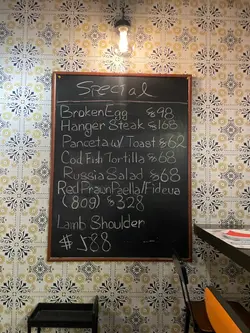 Special
Broken Egg $98
Hanger Steak $168
Panceta w/ Toast $62
Cod Fish Tortilla $68
Russia Salad $68
Red Praun Paella/Fideua
(80g) $328
Lamb Shoulder